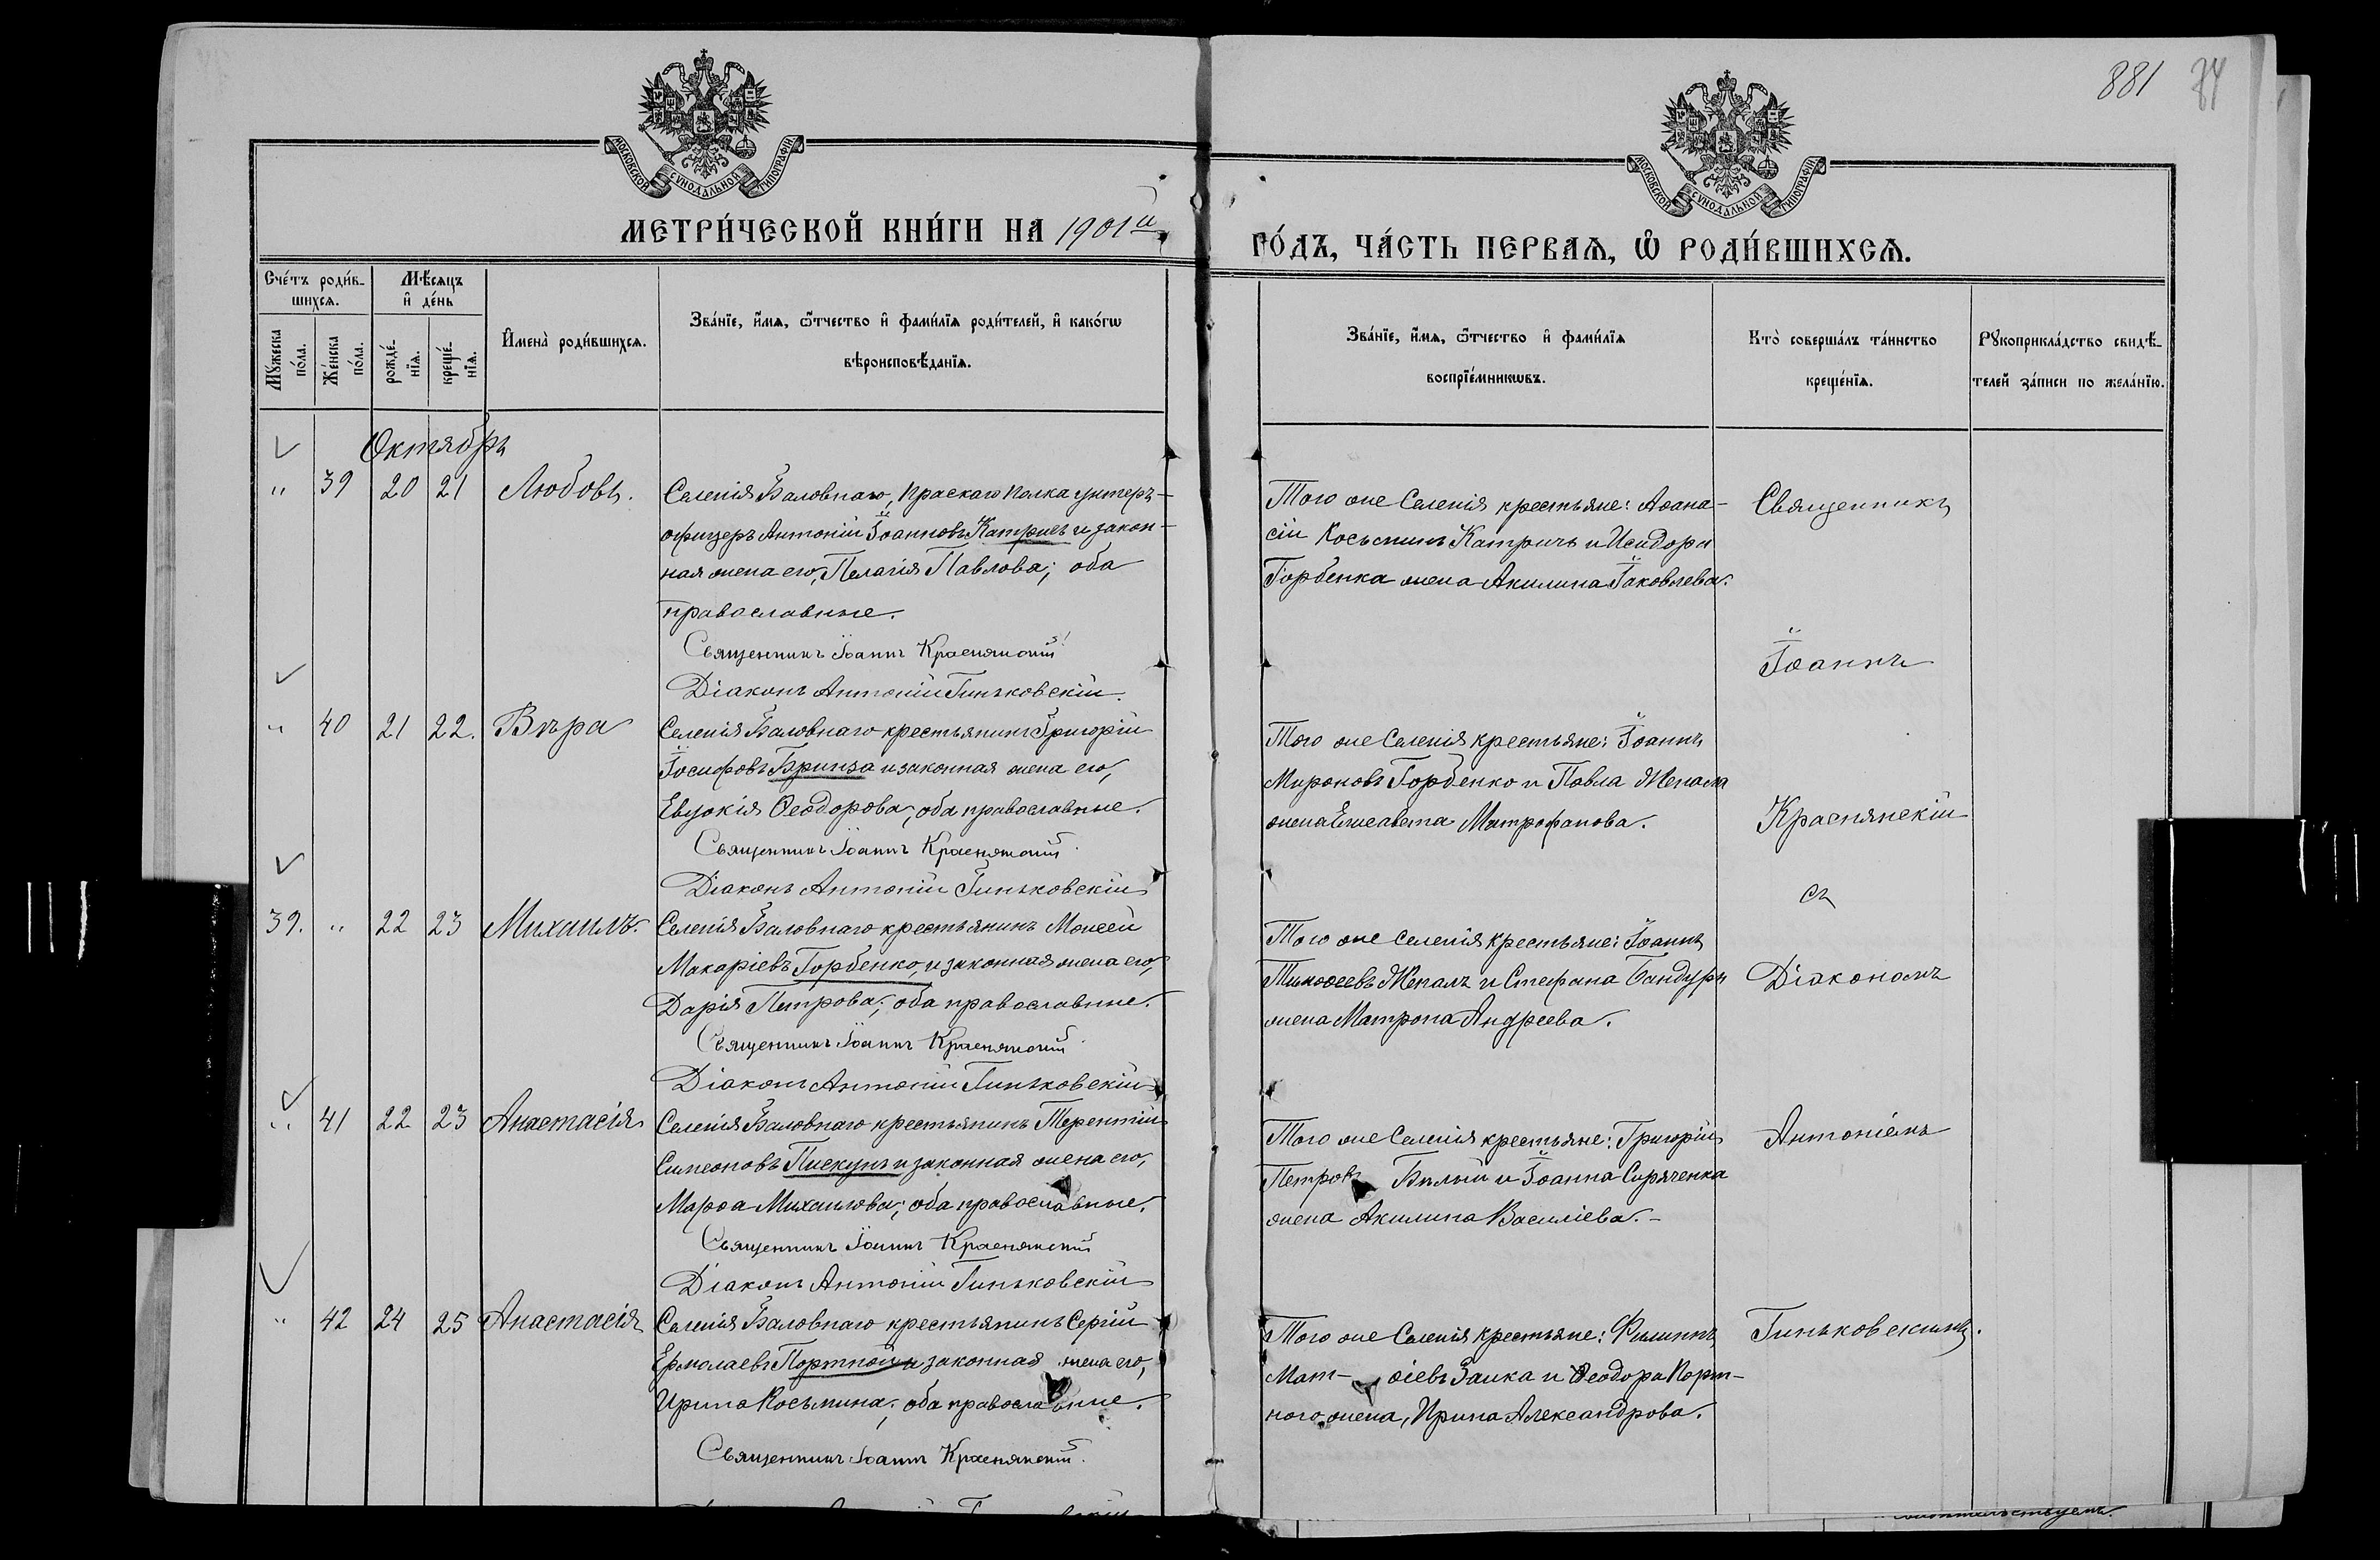 881 74
МОСКОВСКОЙ СѴНОДАЛЬНОЙ ТИПОГРАФІИ
МОСКОВСКОЙ СѴНОДАЛЬНОЙ ТИПОГРАФІИ
МЕТРИ́ЧЕСКОЙ КНИ́ГИ НА 1901й
ГО́ДЪ, ЧА́СТЬ ПЕРВАѦ, Ѡ҆ РОДИ́ВШИХСѦ.
Сче́тъ роди́в-
шихсѧ.
Мѣ́сѧцъ
и҆ де́нь
Мꙋ́жеска
по́ла.
Же́нска
по́ла.
рожде́-
нїѧ.
креще́-
нїѧ.
И҆мена̀ роди́вшихсѧ.
Зва́нїе, и҆́мѧ, ѻ҆́тчество и҆ фами́лїѧ роди́телей, и҆ како́гѡ
вѣроисповѣ́данїѧ.
Зва́нїе, и҆́мѧ, ѻ҆́тчество и҆ фами́лїѧ
воспрїе́мникѡвъ.
Кто̀ соверша́лъ та́инство
креще́нїѧ.
Рꙋкоприкла́дство свидѣ́-
телей за́писи по жела́нїю.
Октябрь
" 39 20 21 Любовь.
Селенія Баловнаго, Прагскаго Полка унтеръ-
офицеръ Антоній Іоанновъ Катричъ и закон-
ная жена его, Пелагія Павлова; оба
православные.
Священникъ Іоаннъ Краснянскій
Діаконъ Антоній Гиньковскій.
Того же Селенія крестьяне: Аѳана-
сій Косьминъ Катричъ и Исидора
Горбенка жена Акилина Іаковлева.
" 40 21 22. Вѣра
Селенія Баловнаго крестьянинъ Григорій
Іосифовъ Бринза и законная жена его,
Евдокія Ѳеодорова, оба православные.
Священникъ Іоаннъ Краснянскій
Діаконъ Антоній Гиньковскій
Того же Селенія крестьяне: Іоаннъ
Мироновъ Горбенко и Павла Жепала
жена Елисавета Митрофанова.
39. " 22 23 Михаилъ.
Селенія Баловнаго крестьянинъ Моисей
Макаріевъ Горбенко, и законная жена его,
Дарія Петрова; оба православные.
Священникъ Іоаннъ Краснянскій
Діаконъ Антоній Гиньковскій
Того же Селенія крестьяне: Іоаннъ
Тимоѳеевъ Жепалъ и Стефана Бандуры
жена Матрона Андреева.
" 41 22 23 Анастасія
Селенія Баловнаго крестьянинъ Терентій
Симеоновъ Пискунъ и законная жена его,
Марѳа Михаилова; оба православные.
Священникъ Іоаннъ Краснянскій
Діаконъ Антоній Гиньковскій
Того же Селенія крестьяне: Григорій
Петровъ Бѣлый и Іоанна Сиряченка
жена Акилина Василіева.-
" 42 24 25 Анастасія
Селенія Баловнаго крестьянинъ Сергій
Ермолаевъ Портной и законная жена его,
Ирина Косьмина; оба православные.
Священникъ Іоаннъ Краснянскій.
Того же Селенія крестьяне: Филиппъ
Мат- ѳіевъ Заика и Ѳеодора Порт-
ного жена, Ирина Александрова.
Священникъ
Іоаннъ
Краснянскій
съ
Діакономъ
Антоніемъ
Гиньковскимъ.